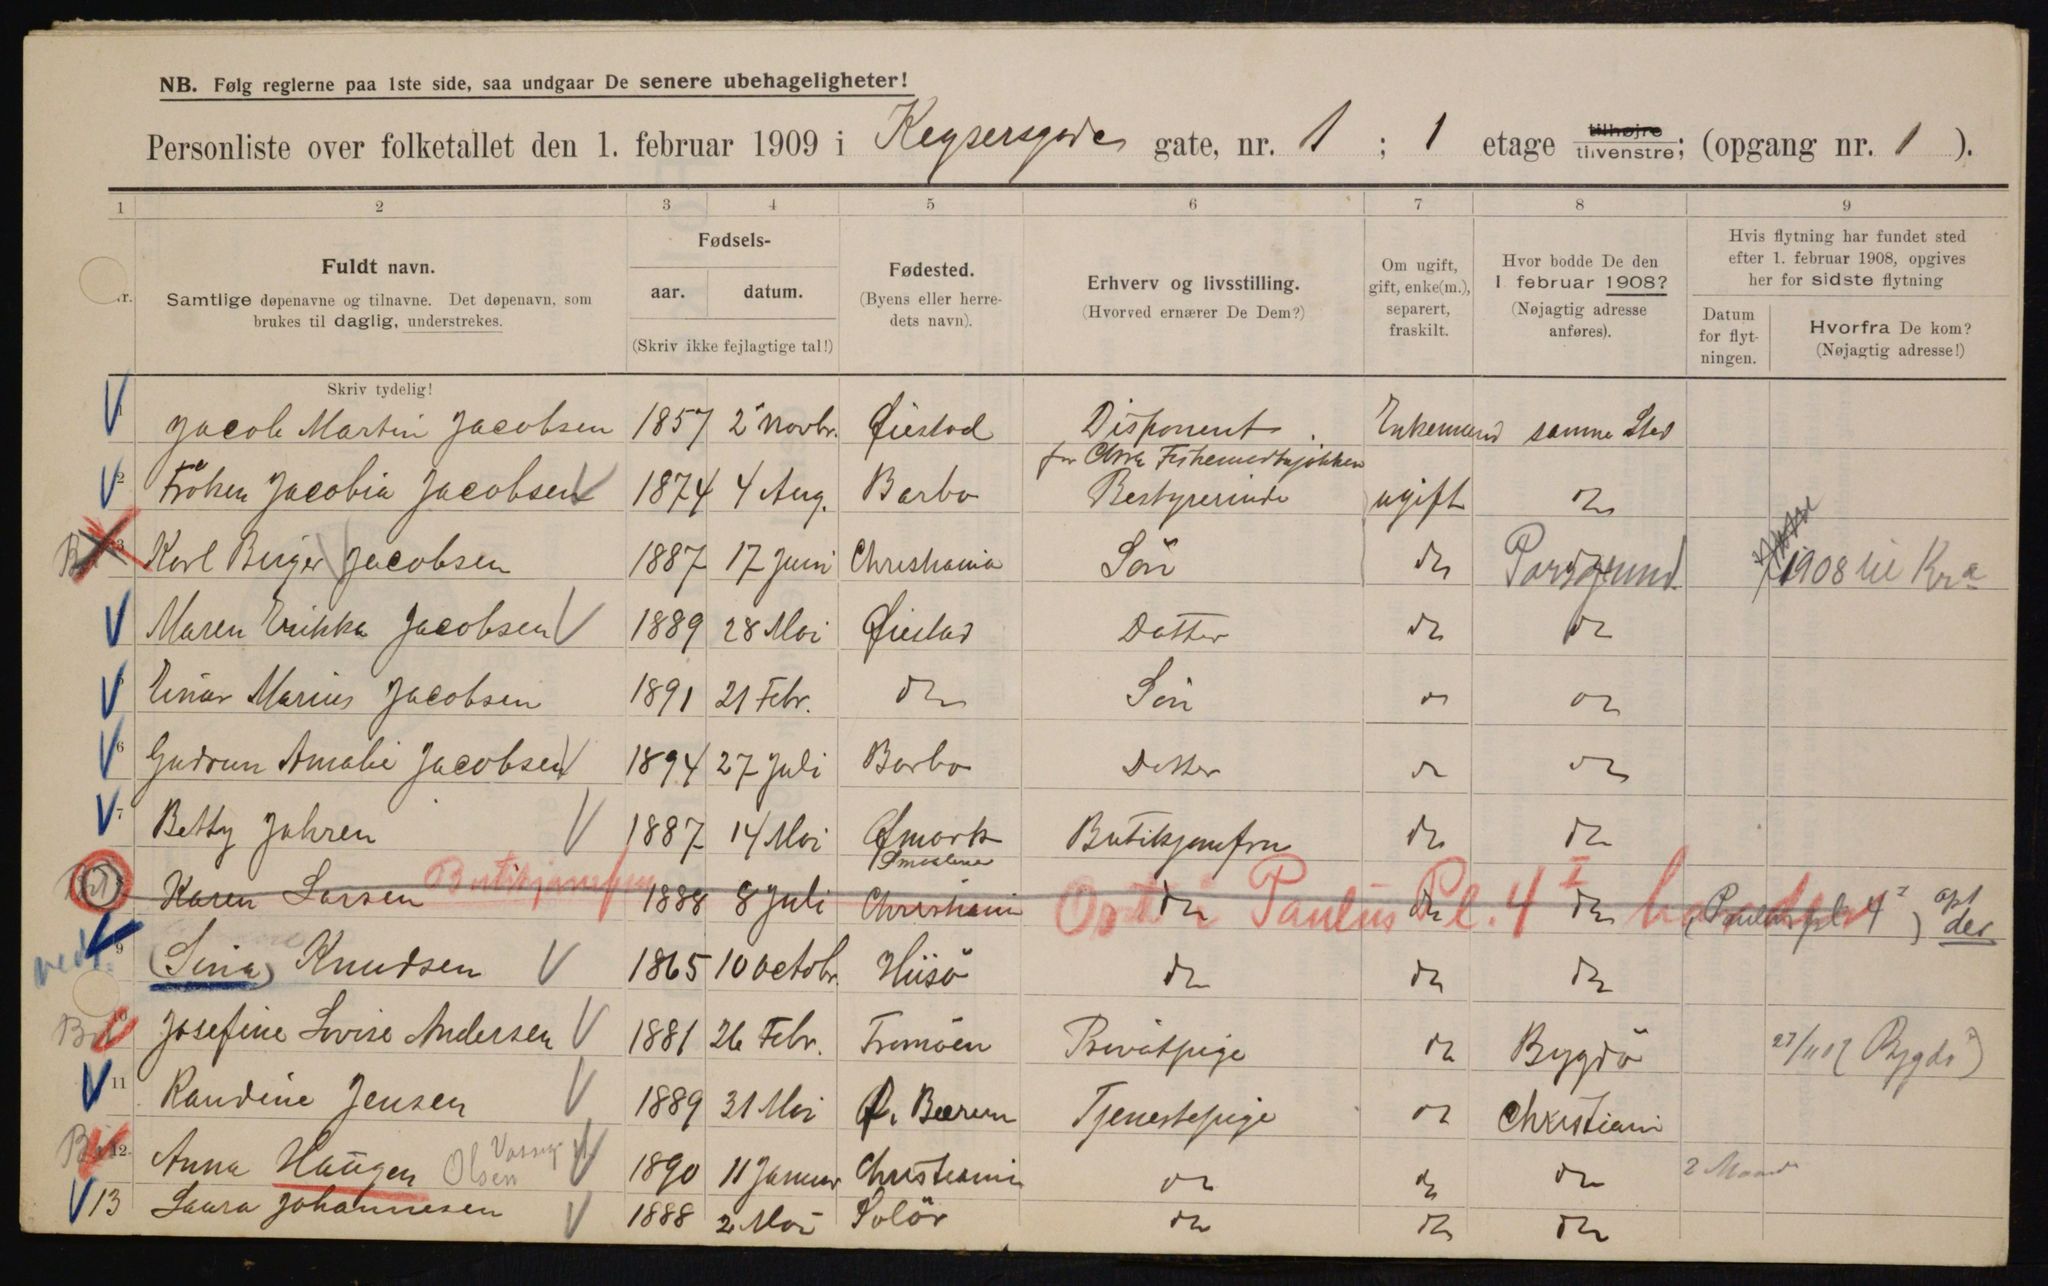 NB. Følg reglerne paa 1ste side, saa undgaar De senere ubehageligheter!
Personliste over folketallet den 1. februar 1909 i Keysersgade gate, nr. 1 ; 1 etage tilhøjre tilvenstre; (opgang nr. 1 ).
1 2 3 4 5 6 7 8 9
Nr. Fuldt navn. Samtlige døpenavne og tilnavne. Det døpenavn, som brukes til daglig, understrekes.
Fødsels- aar. datum. (Skriv ikke fejlagtige tal!)
Fødested. (Byens eller herredets navn).
Erhverv og livsstilling. (Hvorved ernærer De Dem?)
Om ugift, gift, enke(m.), separert, fraskilt.
Hvor bodde De den 1. februar 1908? (Nøjagtig adresse anføres).
Hvis flytning har fundet sted efter 1. februar 1908, opgives her for sidste flytning
Datum for flytningen. Hvorfra De kom? (Nøjagtig adresse!)
Skriv tydelig!
1 Jacob Martin Jacobsen 1857 2 Novbr. Øiestad Disponent Enkemand samme Sted
for Chra
2 Frøken Jacobia Jacobsen 1874 4 Aug. Barbo Bestyrerinde ugift do
3 Karl Birger Jacobsen 1887 17 Juni Christiania Søn do Porsgrund 1908 til Kra
4 Maren Erikka Jacobsen 1889 28 Mai Øiestad Datter do do
5 Einar Marius Jacobsen 1891 21 Febr. do Søn do do
6 Gudrun Amalie Jacobsen 1894 27 Juli Barbo Datter do do
7 Betty Jahren 1887 14 Mai Ømark Butikjomfru do do
Smaalene
8 Karen Larsen Butikjomfru 1888 8 Juli Christiania do do do Opt i Paulus Pl. 4 I (Paulus pl 4 I) opt der
9 (Lina) Knudsen 1865 10 Octobr. Hisø do do do
10 Josefine Lovise Andersen 1881 26 Febr. Tromøen Privatpige do Bygdø (Bygdø)
11 Randine Jensen 1889 31 Mai Ø. Bærum Tjenestepige do Christiania
12 Anna Haugen Olsen 1890 11 Januar Christiania do do do 2 Maaned
13 Laura Johannesen 1888 2 Mai Solør do do do